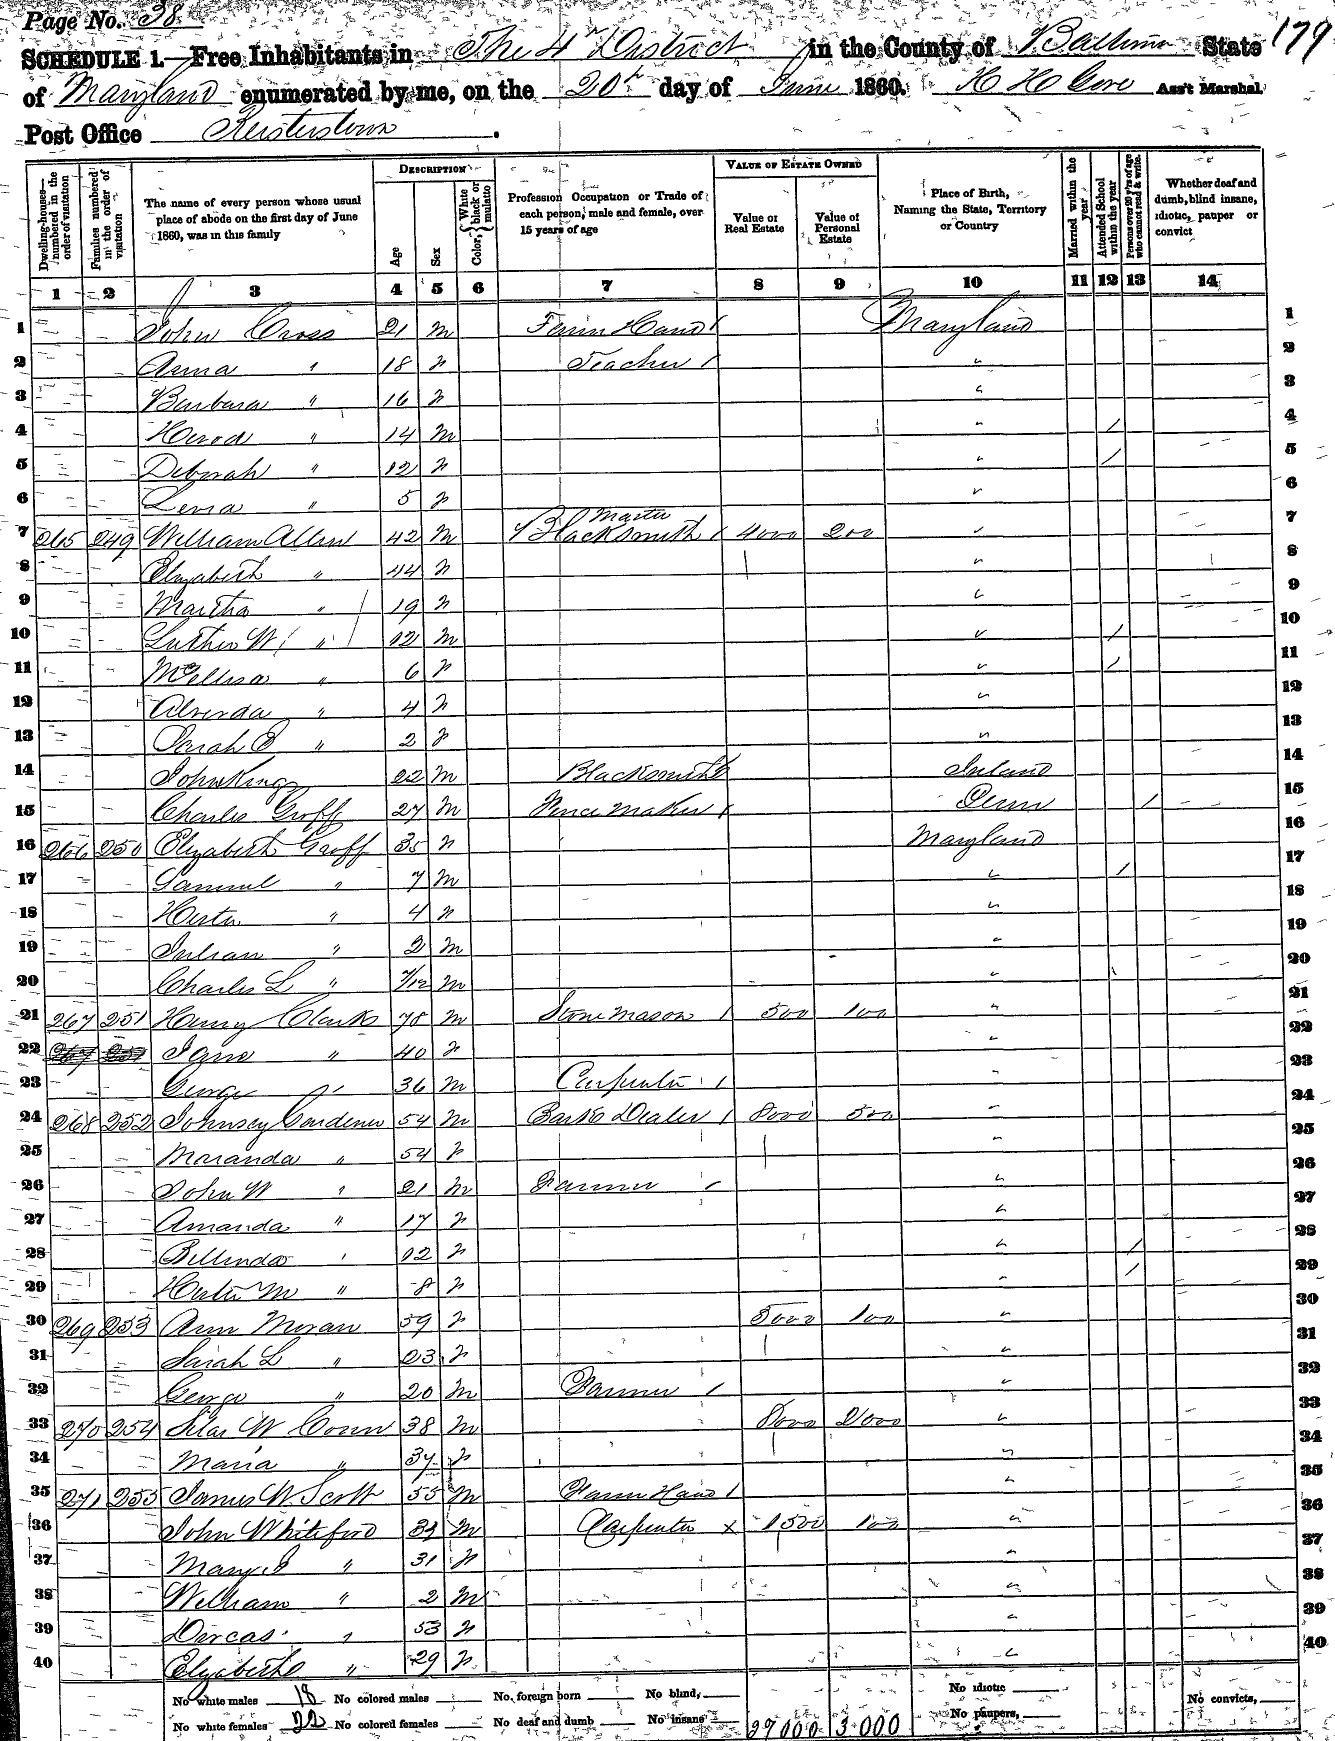 Page No. 38
179
SCHEDULE 1.—Free Inhabitants in The 4th District in the County of Baltimore State
of Maryland enumerated by me, on the 20th day of June 1860. H H Gore Ass't Marshal
Post Office Reisterstown.
Dwelling-houses—numbered in the order of visitation
Families numbered in the order of visitation
The name of every person whose usual place of abode on the first day of June 1860, was in this family
DESCRIPTION
Age
Sex
Color, White black or mulatto
Profession Occupation or Trade of each person, male and female, over 15 years of age
VALUE OF ESTATE OWNED
Value of Real Estate
Value of Personal Estate
Place of Birth, Naming the State, Territory or Country
Married within the year
Attended School within the year
Persons over 20 y'rs of age who cannot read & write.
Whether deaf and dumb, blind insane, idiotic, pauper or convict
1 2 3 4 5 6 7 8 9 10 11 12 13 14
1 John Cross 21 M Farm Hand / Maryland 1
2 Anna " 18 F Teacher / " 2
3 Barbara " 16 F " 3
4 Herod " 14 M " / 4
5 Deborah " 12 F " / 5
6 " 5 F " 6
7 265 249 William Allen 42 M Master Blacksmith / 4000 200 " 7
8 Elizabeth " 44 F " 8
9 Martha " 19 F " 9
10 Luther W " 12 M " / 10
11 Mellisa " 6 F " / 11
12 Alverda " 4 F " 12
13 Sarah E " 2 F " 13
14 John King 22 M Blacksmith Ireland 14
15 Charles Groff 27 M Fence Maker / Penn / 15
16 266 250 Elizabeth Groff 35 F Maryland 16
17 Samuel " 7 M " / 17
18 Hester " 4 F " 18
19 Julian " 2 M " 19
20 Charles L " 7/12 M " 20
21 267 251 Henry Clarks 78 M Stone Mason / 500 100 " 21
22 Jane " 40 F " 22
23 George " 36 M Carpenter / 23
24 268 252 Johnsey Gardener 54 M Bark Dealer / 8000 500 " 24
25 Maranda " 54 F " 25
26 John W " 21 M Farmer / " 26
27 Amanda " 17 F " 27
28 Bellinda " 12 F " / 28
29 Hester M " 8 F " / 29
30 269 253 Ann Moran 59 F 5000 100 " 30
31 Sarah L " 23 F " 31
32 George " 20 M Farmer / " 32
33 270 254 Silas W Conn 38 M 8000 2000 " 33
34 Maria " 34 F " 34
35 271 255 James W. Scott 55 M Farm Hand / " 35
36 John Whiteford 39 M Carpenter x 1500 100 " 36
37 Mary " 31 F " 37
38 William " 2 M " 38
39 Dorcas " 53 F " 39
40 Elizabeth " 29 F " 40
No white males 18 No colored males No. foreign born No blind, No idiotic No convicts,
No white females 22 No colored females No deaf and dumb No insane 27000 3000 No paupers,